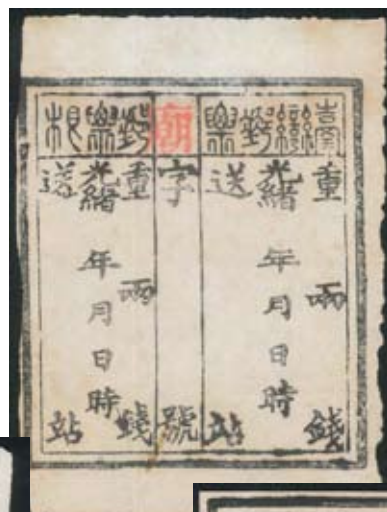 臺灣郵票
重 兩 錢
光緒 年 月 日 時
送 站
字 號
郵票根
重 兩 錢
光緒 年 月 日 時
送 站